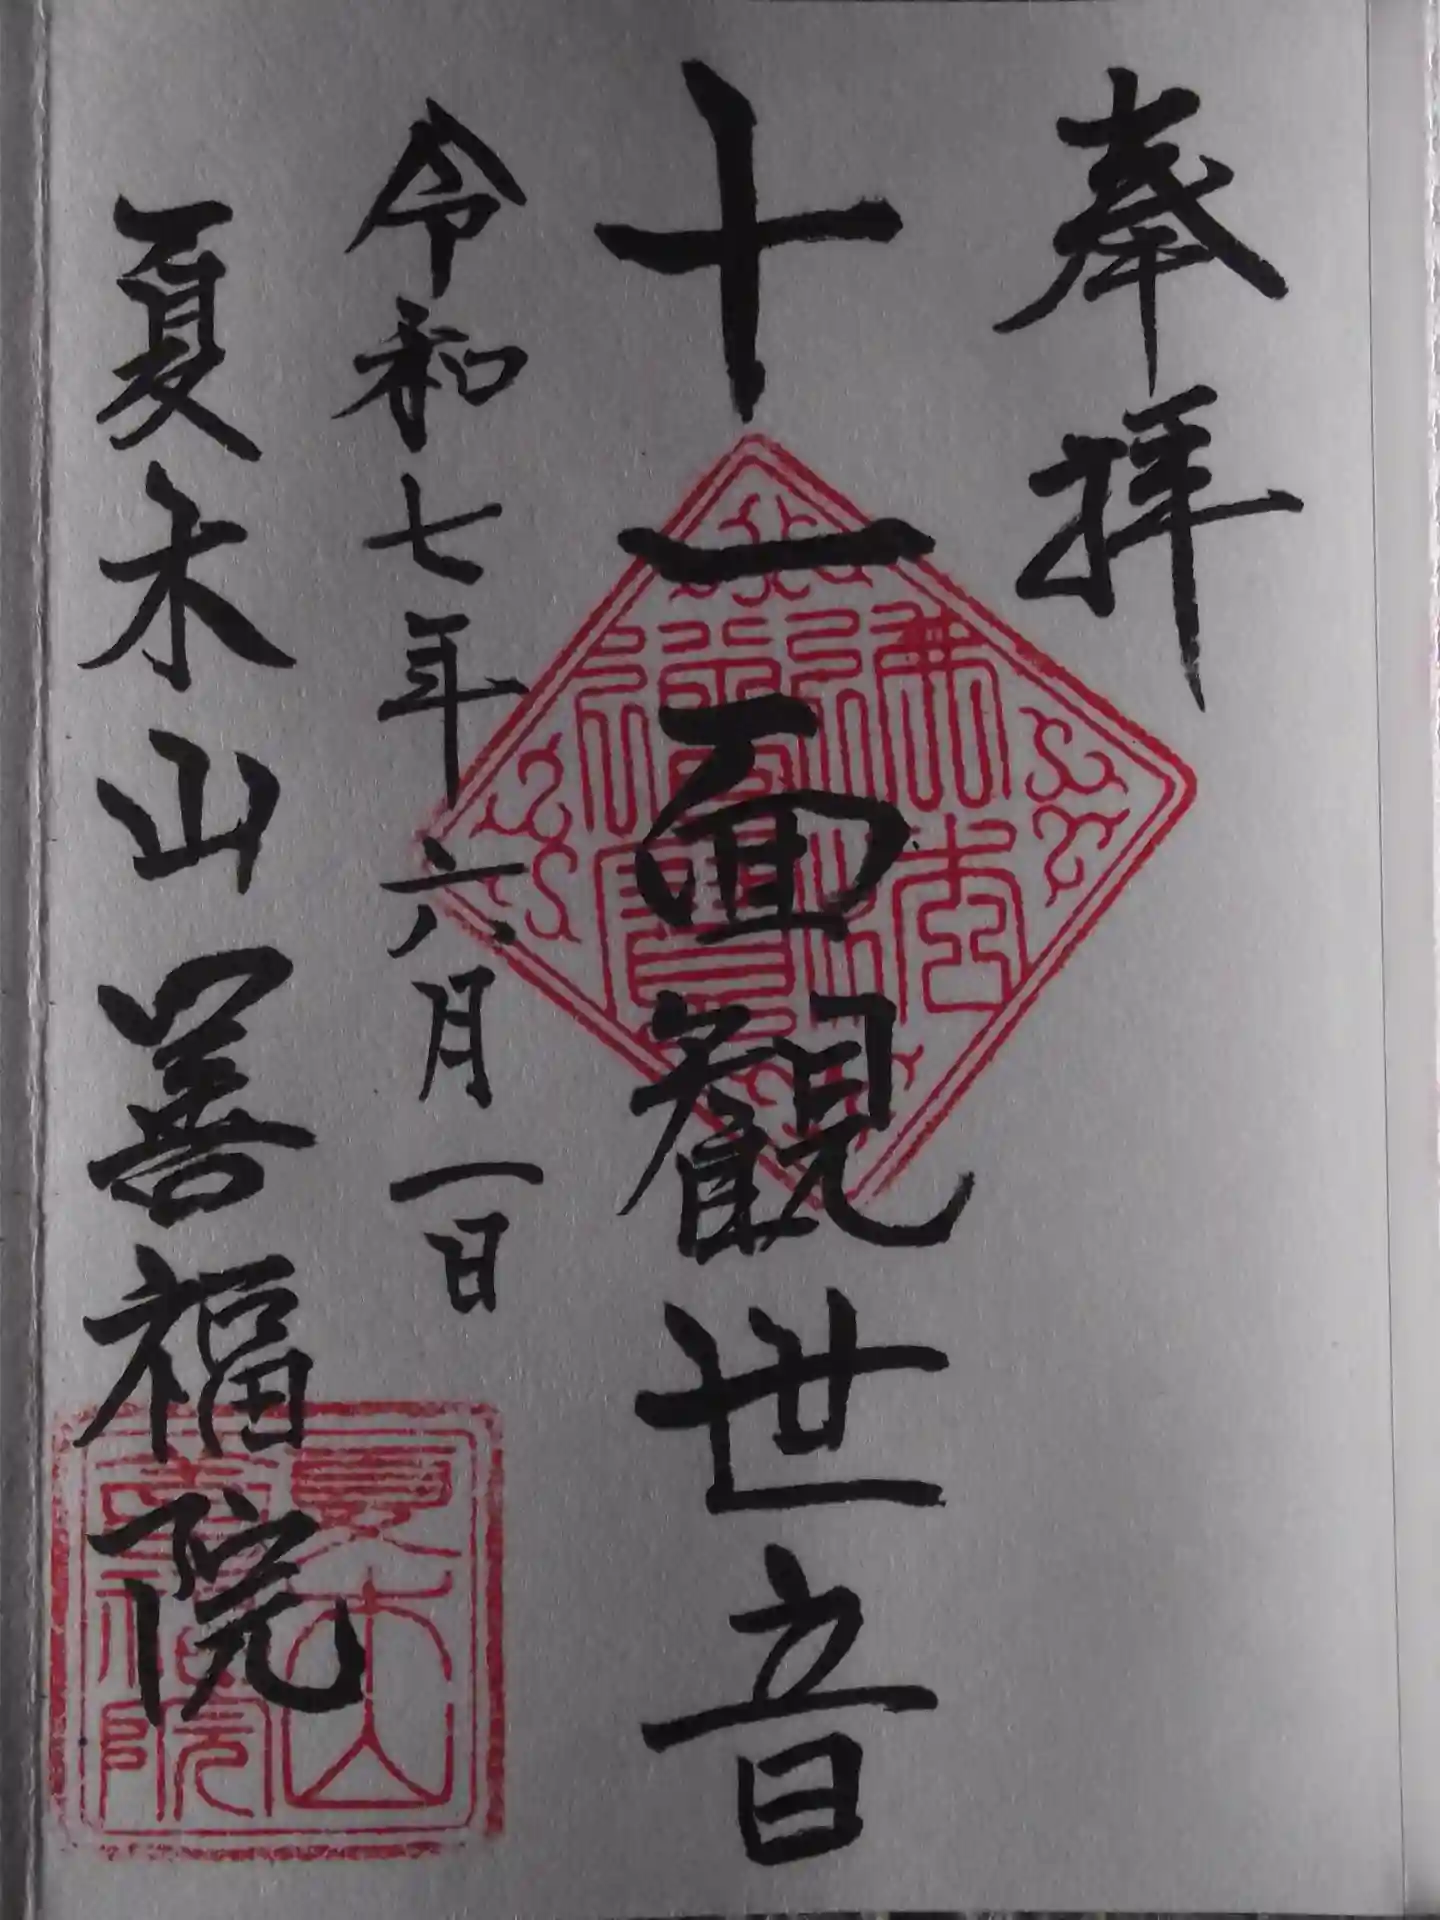 奉拝
十一面観世音
令和七年六月一日
夏木山善福院
佛法僧寳
夏木山
善福院